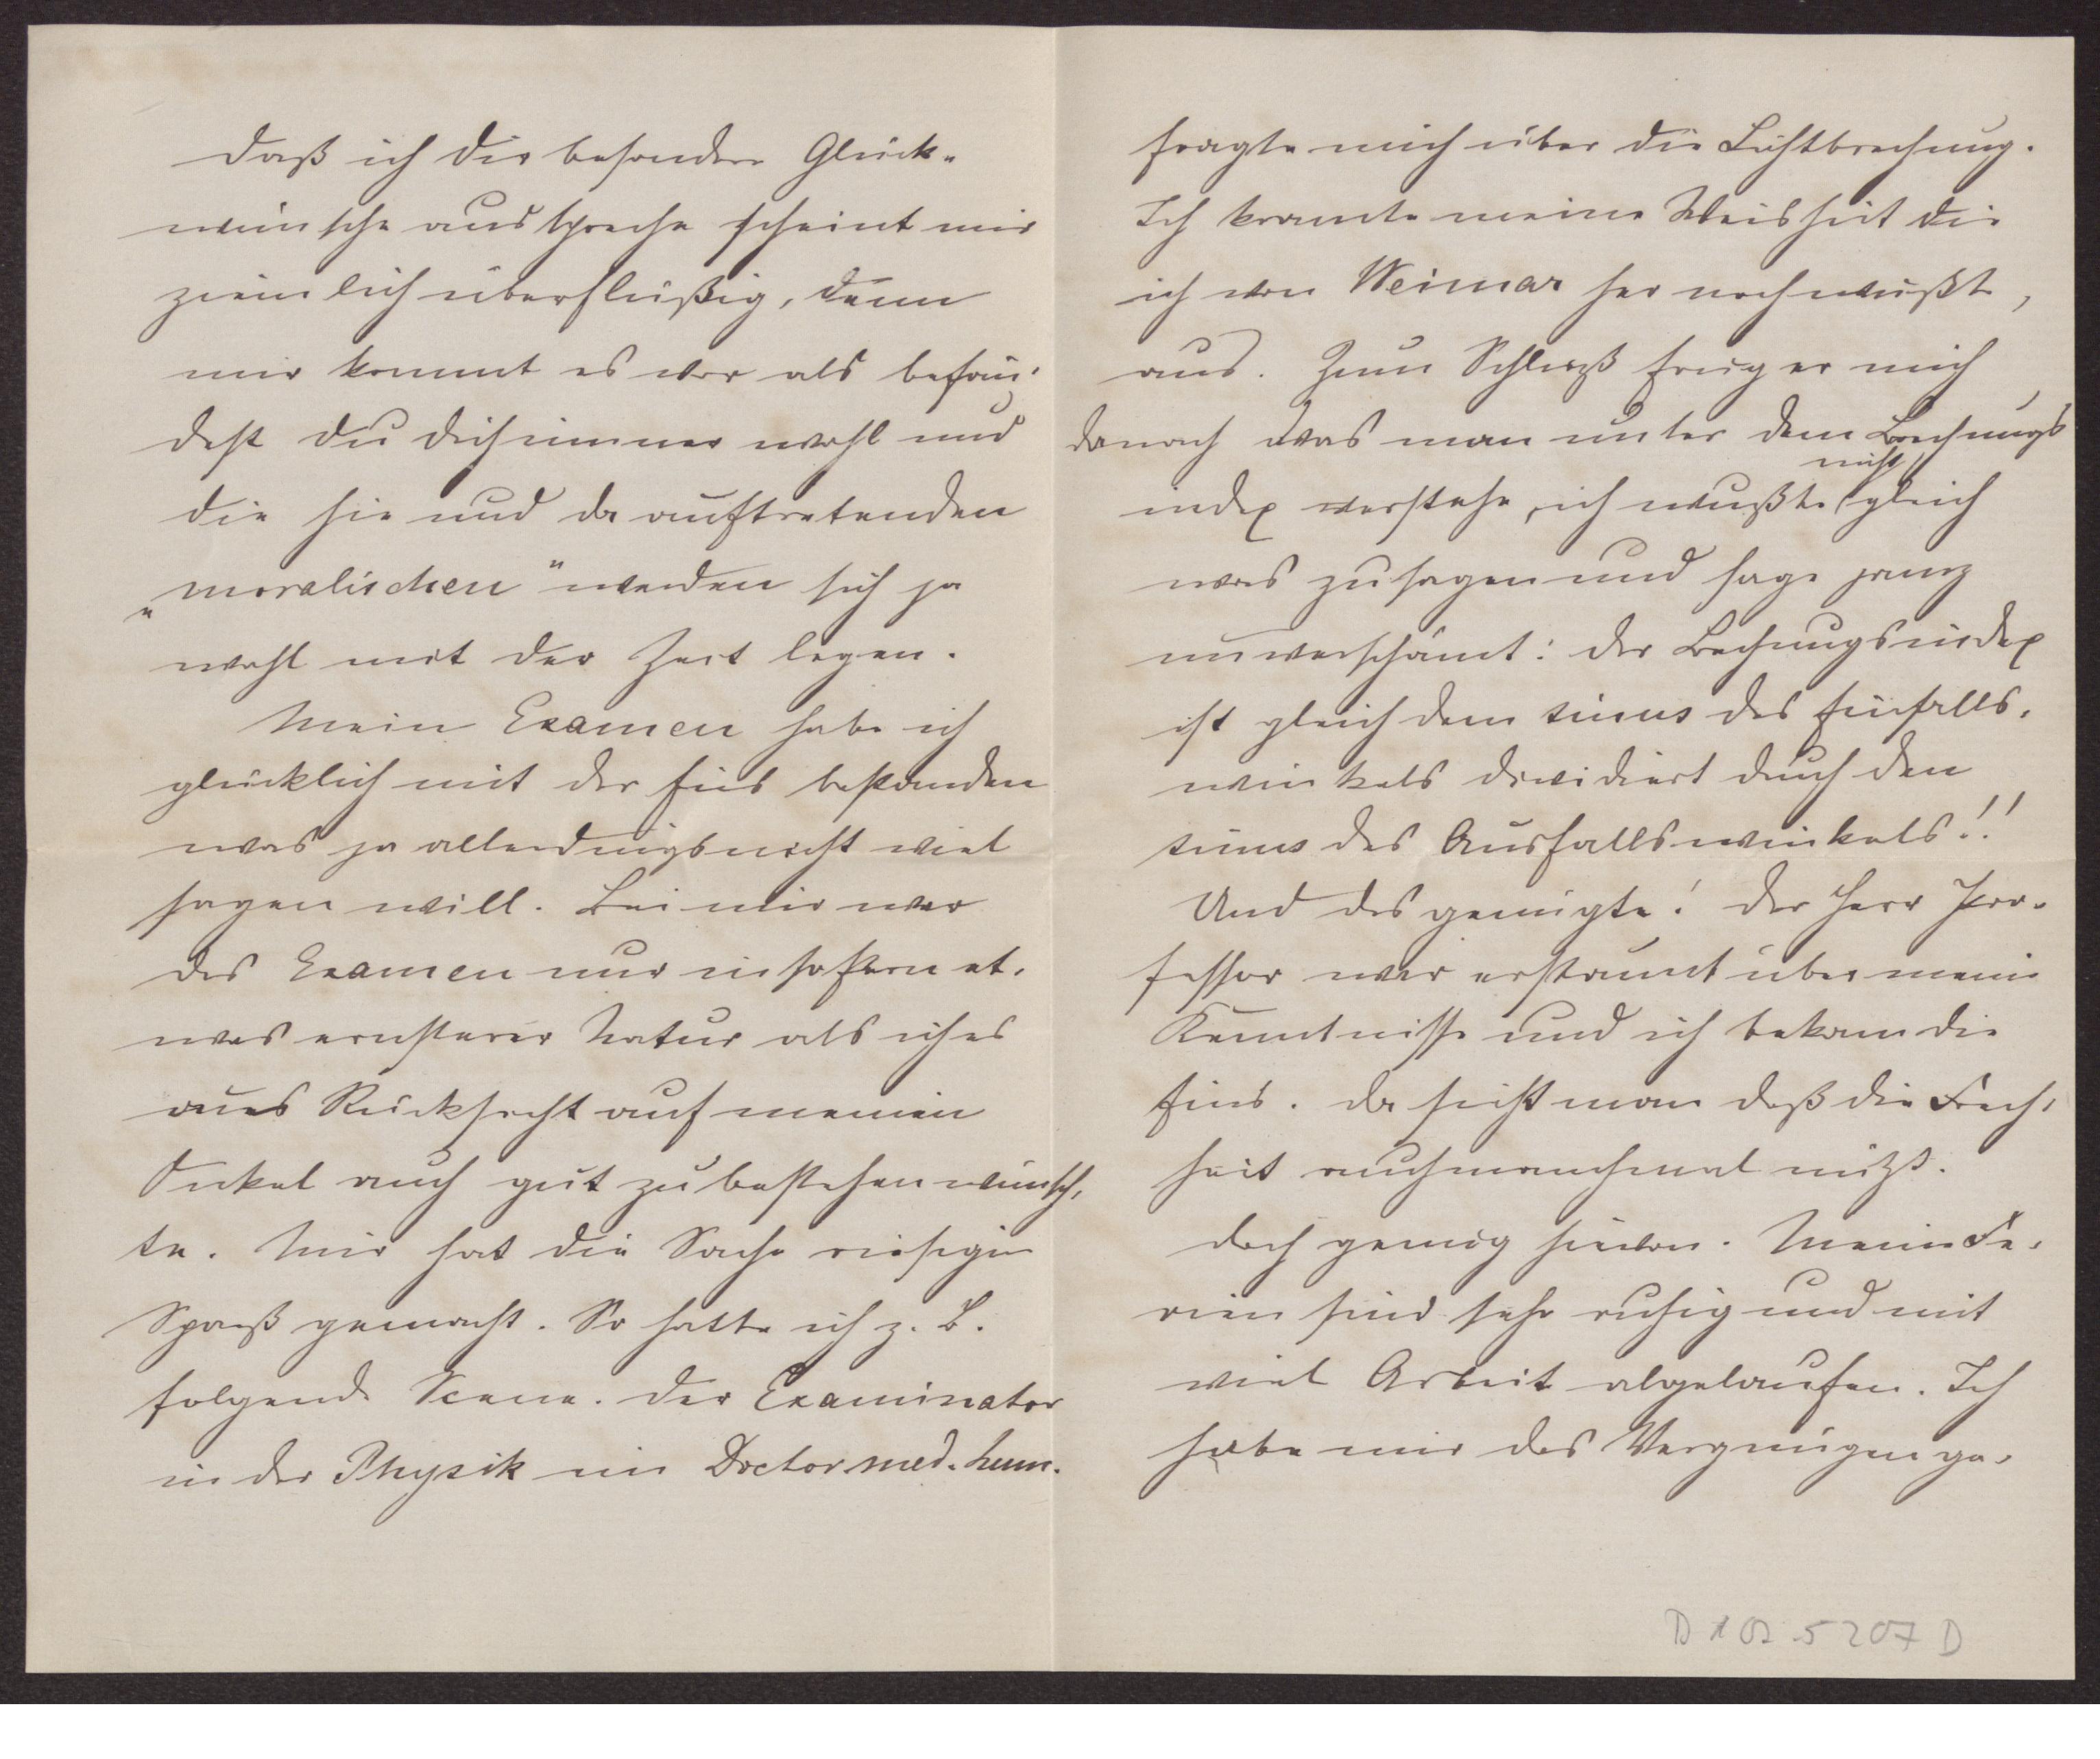 Daß ich dir besondere Glück-
wünsche ausspreche scheint mir
ziemlich überflüßig, denn
mir kommt es vor als befän-
dest du dich immer wohl und
die hie und da auftretenden
„moralischen" werden sich ja
wohl mit der Zeit legen.
Mein Examen habe ich
glücklich mit der Eins bestanden
was ja allerdings nicht viel
sagen will. Bei mir war
das Examen nur insofern et-
was ernsterer Natur als ich es
aus Rücksicht auf meinen
Onkel auch gut zu bestehen wünsch-
te. Mir hat die Sache riesigen
Spaß gemacht. So hatte ich z. B.
folgende Scene. Der Examinator
in der Physik ein Doctor med. hum.
fragte mich über die Lichtbrechung.
Ich kramte meine Weisheit die
ich von Weimar her noch wußte,
aus. Zum Schluß frug er mich
danach was man unter dem Brechungs
index verstehe, ich wußte nicht gleich
was zu sagen und sage ganz
unverschämt: der Brechungsindex
ist gleich dem sinus des Einfalls-
winkels dividiert durch den
sinus des Ausfallswinkels!!
Und das genügte! Der Herr Pro-
fessor war erstaunt über meine
Kenntnisse und ich bekam die
Eins. Da sieht man daß die Frech-
heit auch manchmal nützt.
Doch genug hievon. Meine Fe-
rien sind sehr ruhig und mit
viel Arbeit abgelaufen. Ich
habe mir das Vergnügen ge-
D 102.5207 D